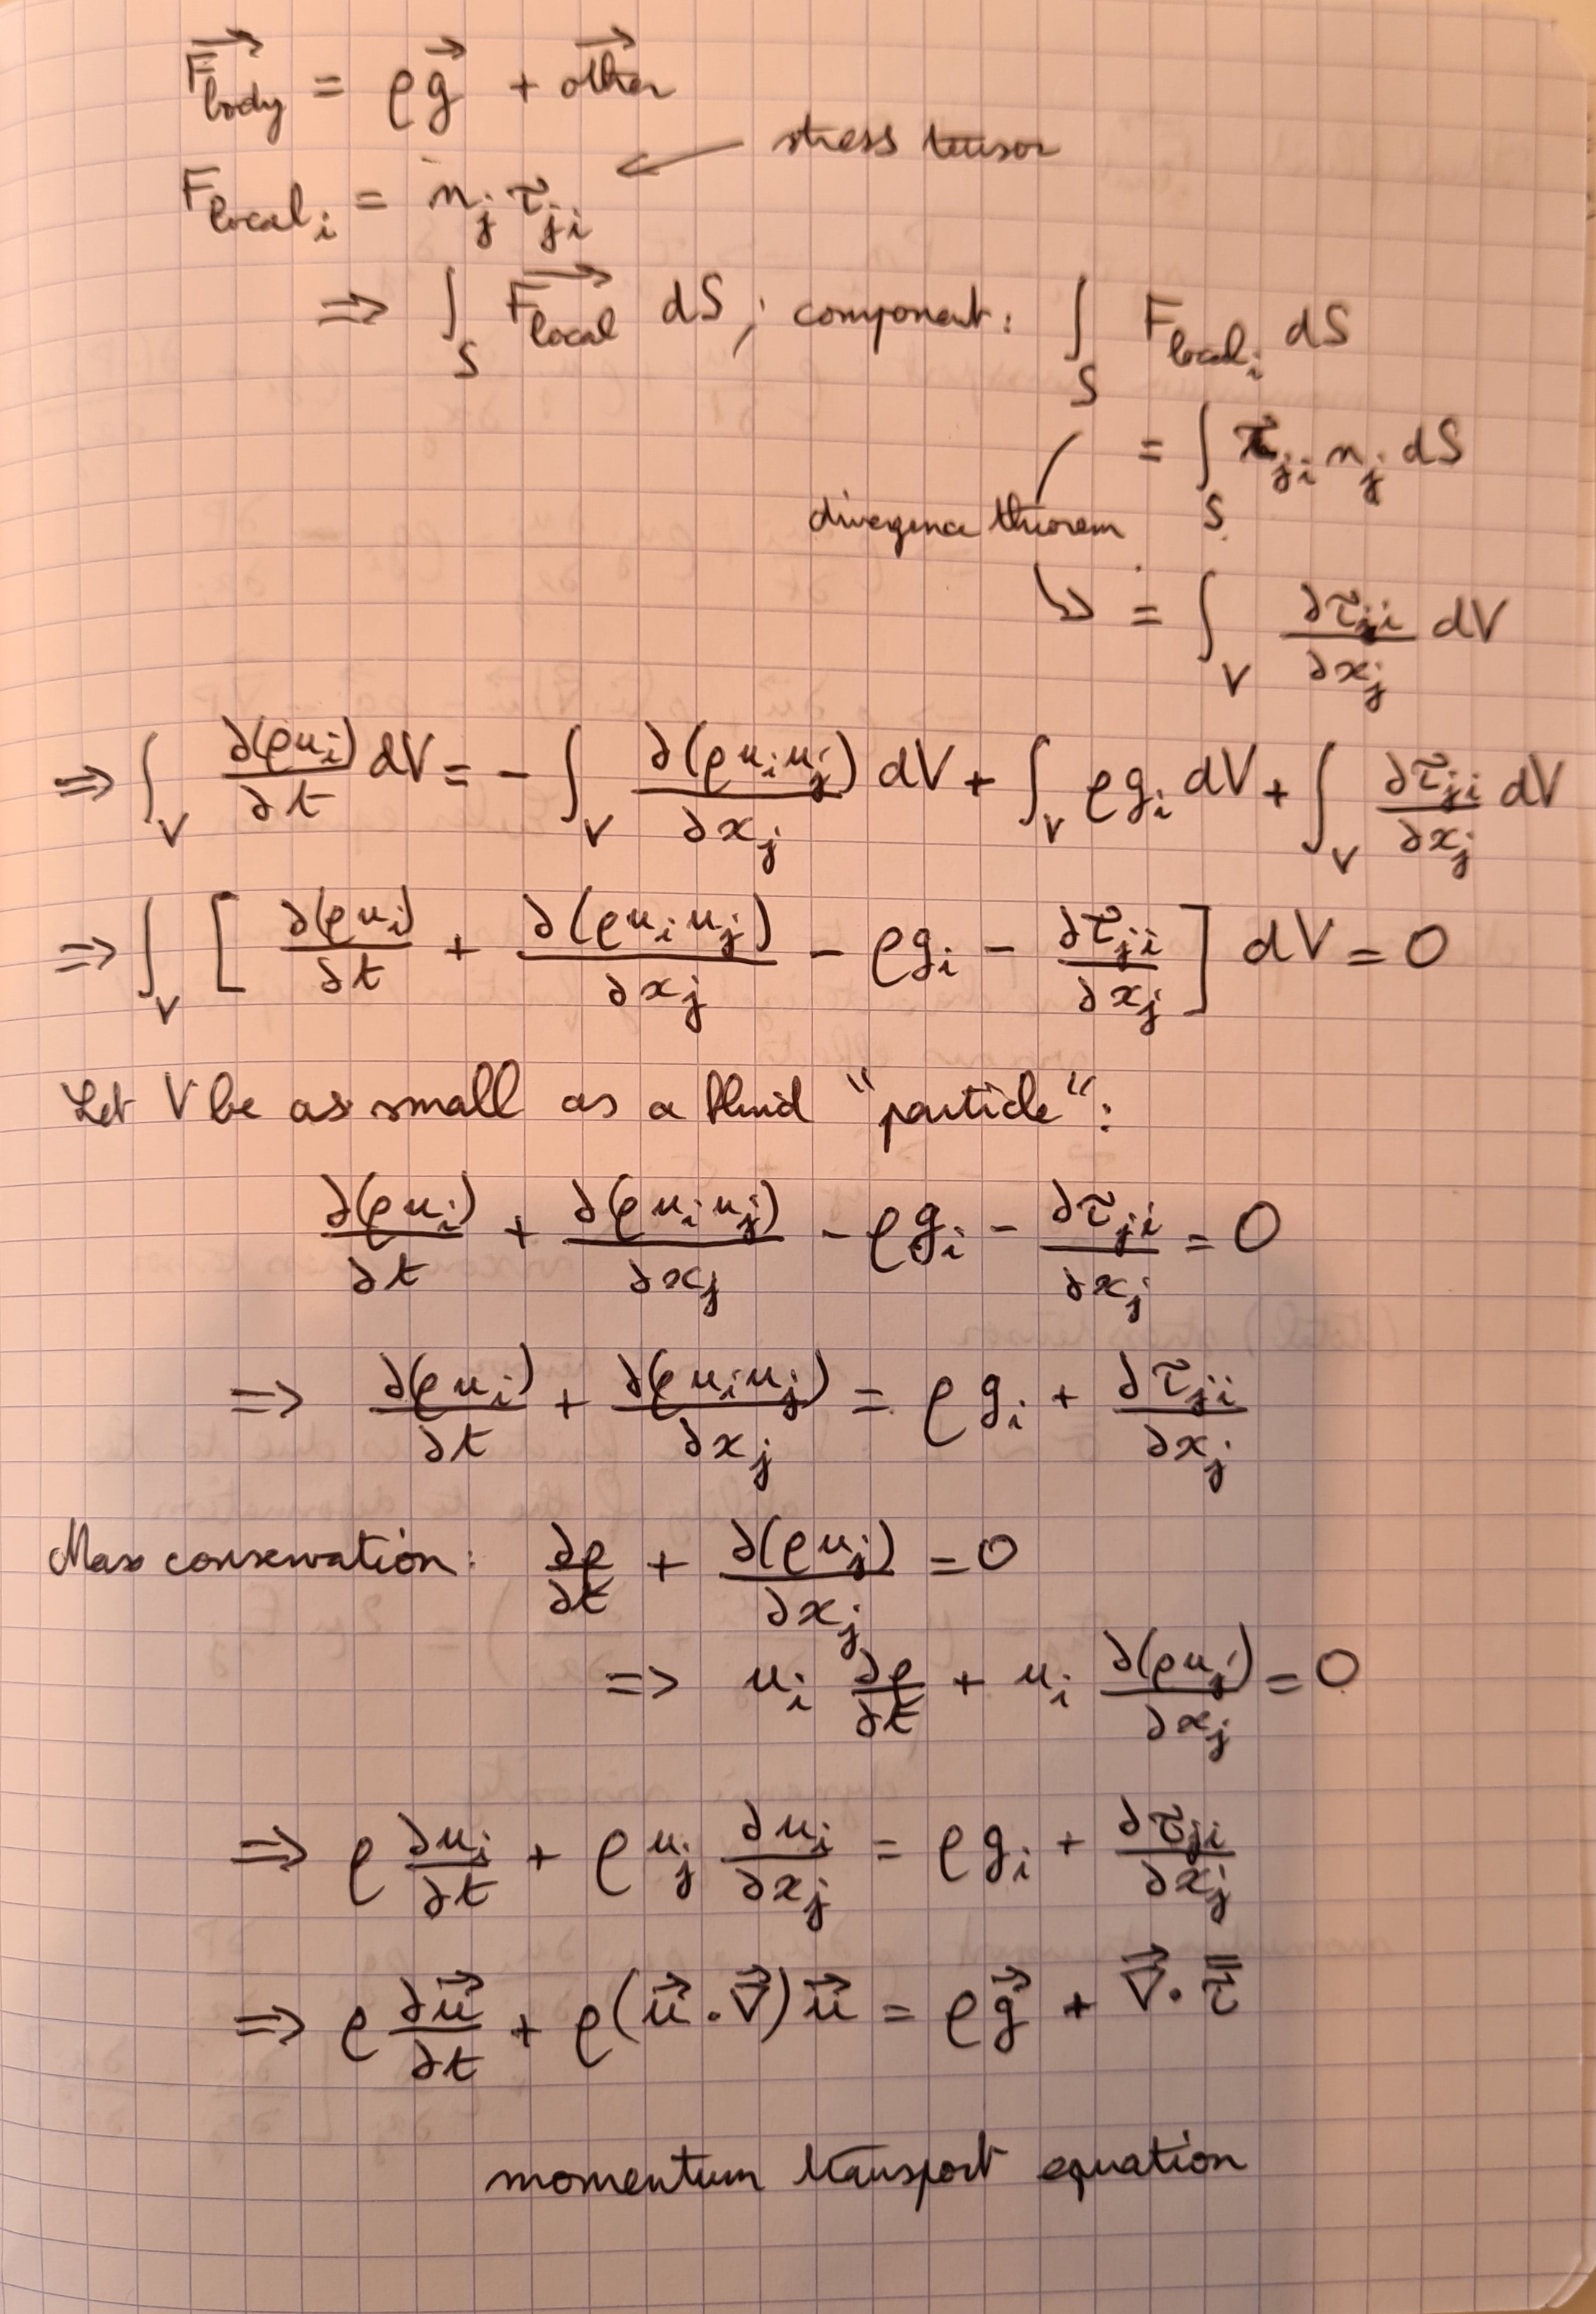 F⃗_body = ρg⃗ + other⃗
F_local_i = n_j τ_ji ← stress tensor
⇒ ∫_S F⃗_local dS ; component: ∫_S F_local_i dS
= ∫_S τ_ji n_j dS
divergence theorem
↳ = ∫_V ∂τ_ji/∂x_j dV
⇒ ∫_V ∂(ρu_i)/∂t dV = - ∫_V ∂(ρu_i u_j)/∂x_j dV + ∫_V ρg_i dV + ∫_V ∂τ_ji/∂x_j dV
⇒ ∫_V [ ∂(ρu_i)/∂t + ∂(ρu_i u_j)/∂x_j - ρg_i - ∂τ_ji/∂x_j ] dV = 0
Let V be as small as a fluid "particle":
∂(ρu_i)/∂t + ∂(ρu_i u_j)/∂x_j - ρg_i - ∂τ_ji/∂x_j = 0
⇒ ∂(ρu_i)/∂t + ∂(ρu_i u_j)/∂x_j = ρg_i + ∂τ_ji/∂x_j
Mass conservation: ∂ρ/∂t + ∂(ρu_j)/∂x_j = 0
⇒ u_i ∂ρ/∂t + u_i ∂(ρu_j)/∂x_j = 0
⇒ ρ ∂u_i/∂t + ρ u_j ∂u_i/∂x_j = ρg_i + ∂τ_ji/∂x_j
⇒ ρ ∂u⃗/∂t + ρ(u⃗ . ∇⃗)u⃗ = ρg⃗ + ∇⃗ . τ̿
momentum transport equation